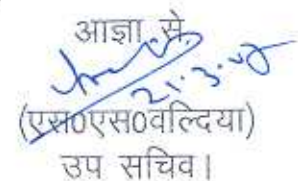 आज्ञा से
21.3.07
(एस0एस0वल्दिया)
उप सचिव।